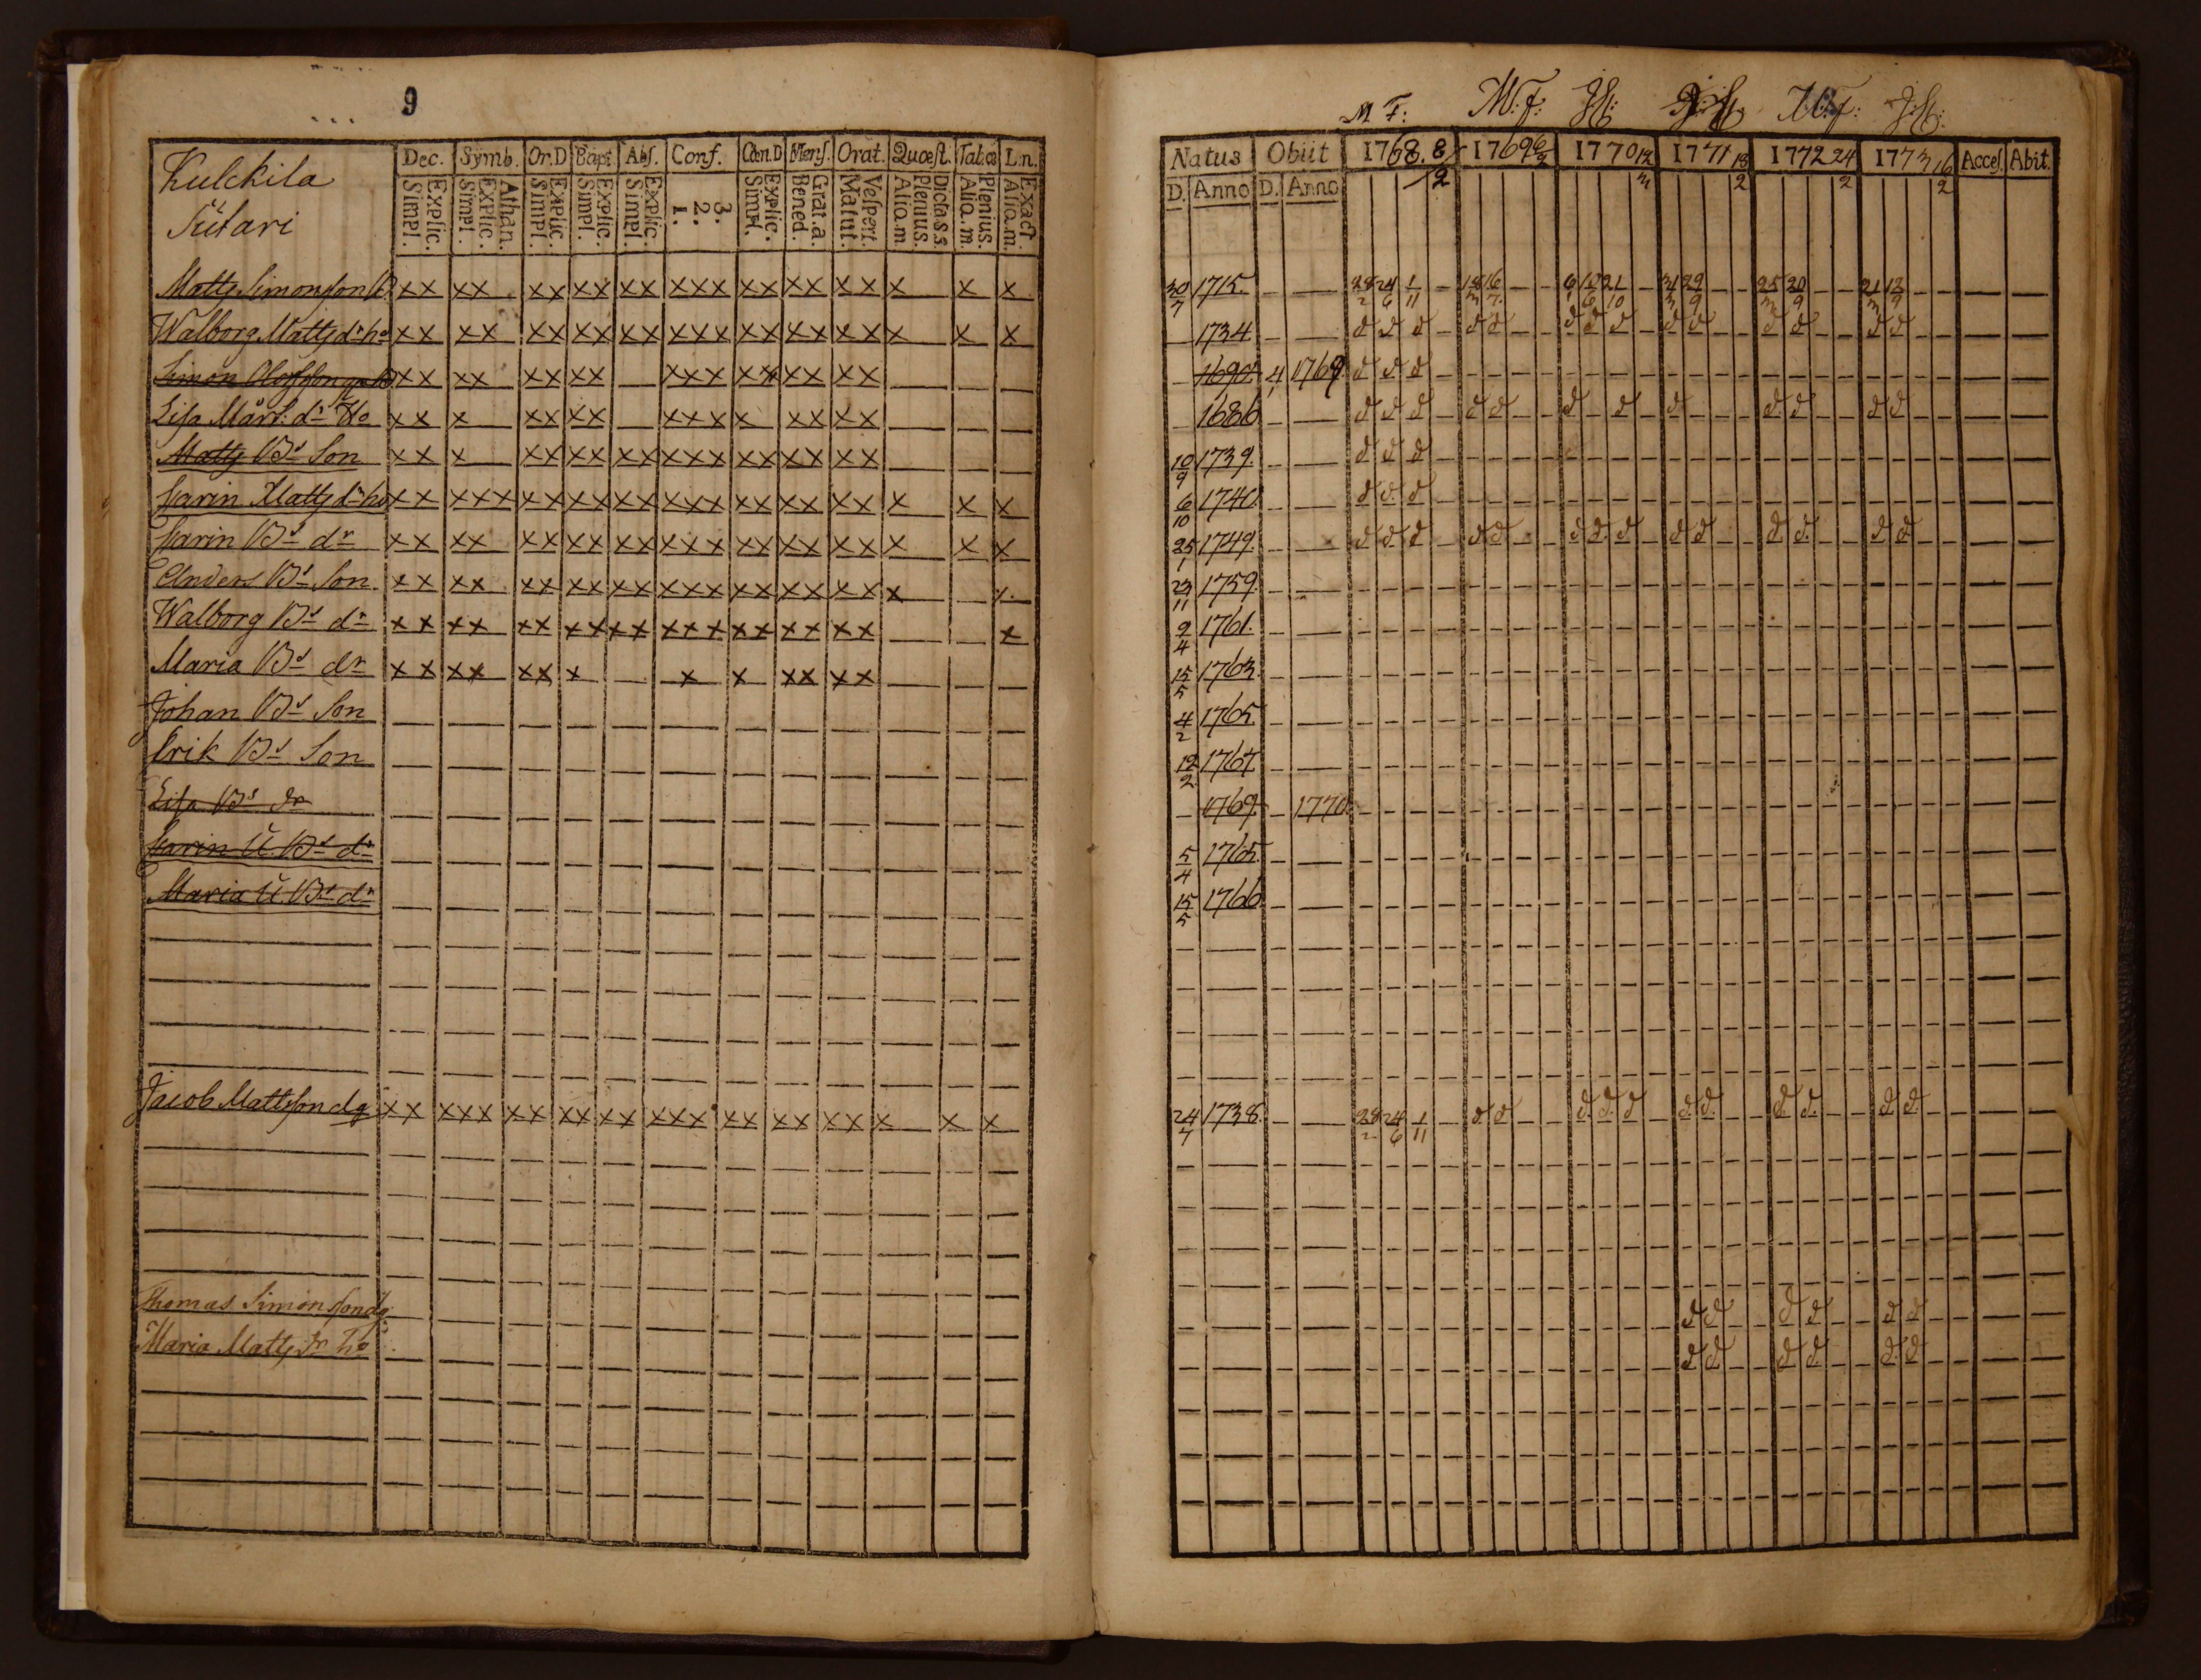 9
Kulckila
Sutari
Dec. Symb. Or.D Bapt. Abs. Conf. Cœn.D Mens. Orat. Quæst. Tab.œc L.n.
Explic. Simpl. Athan. Explic. Simpl. Explic. Simpl. Explic. Simpl. Explic. Simpl. 3. 2. 1. Explic. Simpl. Grat.a. Bened. Vespert. Matut. Dicta s.s. Plenius. Aliq.m. Plenius. Aliq.m. Exact Aliq.m.
Matts Simonsson B xx xx xx xx xx xxx xx xx xx x x x
Walborg Matts dr ho xx xx xx xx xx xxx xx xx xx x x x
Simon Olofsson xx xx xx xx xxx xx xx xx
Lisa Mårt: dr Ho xx x xx xx xxx x xx xx
Matts Bs Son xx x xx xx xx xxx xx xx xx
Karin Matts dr ho xx xxx xx xx xx xxx xx xx xx x x x
Karin Bs dr xx xx xx xx xx xxx xx xx xx x x x
Anders Bs Son xx xx xx xx xx xxx xx xx xx x x
Walborg Bs dr xx xx xx xx xx xxx xx xx xx x
Maria Bs dr xx xx xx x x x xx xx
Johan Bs Son
Erik Bs Son
Lisa Bs dr
Karin U. Bs dr
Maria U. Bs dr
Jacob Mattsson dg xx xxx xx xx xx xxx xx xx xx x x x
Thomas Simonsson dg
Maria Matts dr ho
M F: M:F: JH: M:F: J:H:
Natus Obiit 1768. 8/2 1769 6/3 1770 12/3 1771 13/2 1772 24/2 1773 16/2 Acces. Abit.
D. Anno D. Anno
30/7 1715. 28/2 24/6 1/11 18/3 16/7 6/1 10/6 21/10 31/3 29/9 25/3 20/9 21/3 12/9
1734 d d d d d d d d d d d d d d
1690 4/1 1769 d d d
1686 d d d d d d d d d d d d
10/9 1739. d d d
6/10 1740. d d d
25/1 1749. d d d d d d d d d d d d d d
23/11 1759.
9/4 1761.
15/5 1763.
4/2 1765.
12/2 1767.
1769. 1770.
5/4 1765.
15/5 1766.
24/7 1738. 28/2 24/6 1/11 d d d d d d d d d d d
d d d d d d
d d d d d d